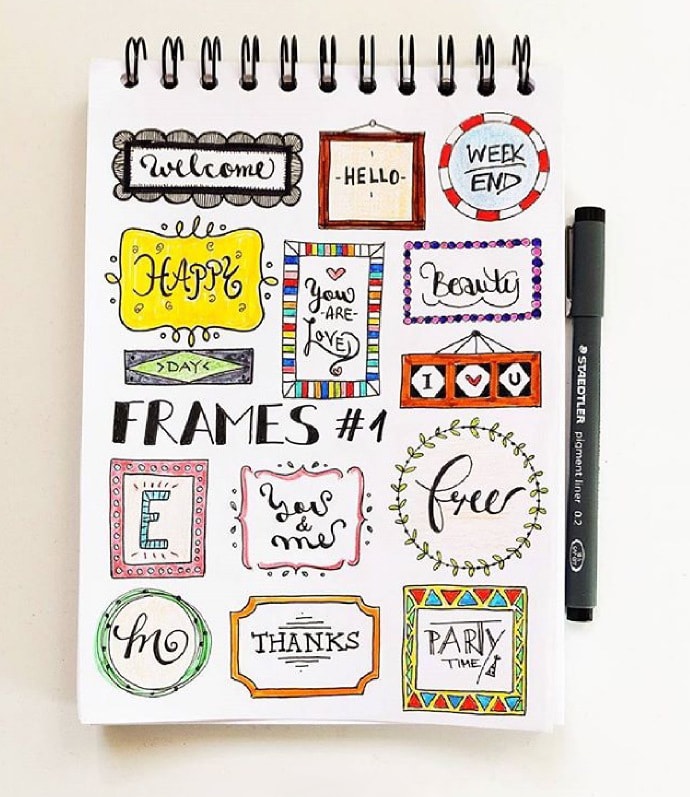 welcome
-HELLO-
WEEK
END
HAPPY
>DAY<
You
-ARE-
LOVED
Beauty
I ♥ U
FRAMES #1
E
You
&
me
free
m
THANKS
PARTY
TIME
STAEDTLER
pigment liner 0.2